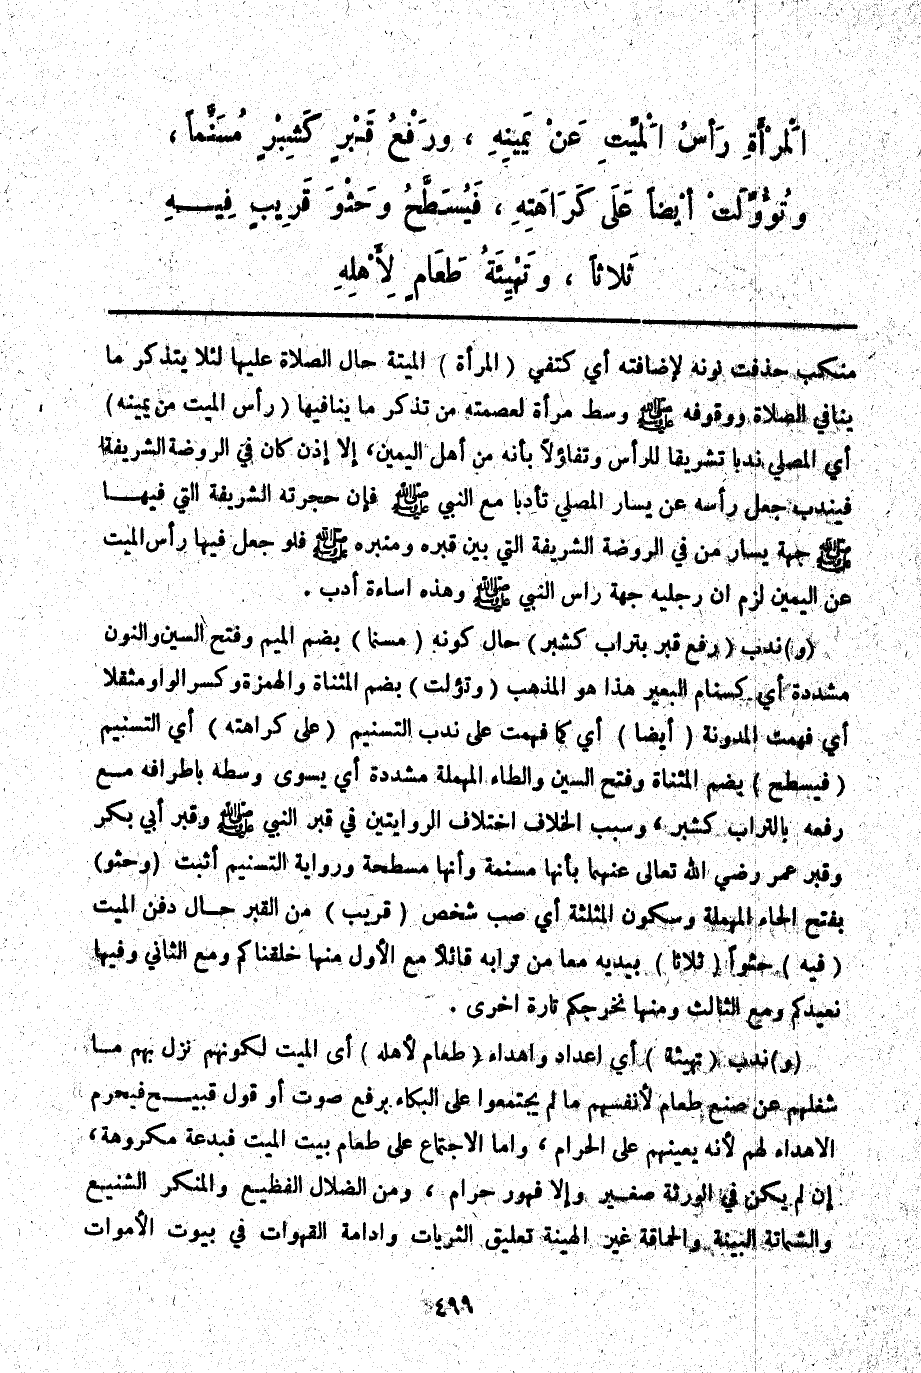 الْمَرْأَةِ رَأْسُ الْمَيِّتِ عَنْ يَمِينِهِ ، ورَفْعُ قَبْرٍ كَشِبْرٍ مُسَنَّماً ،
وتُؤُوِّلَتْ أيْضاً عَلَى كَرَاهَتِهِ ، فَيُسَطَّحُ وحَثْوُ قَرِيبٍ فِيـهِ
ثَلاثاً ، وتَهْيِئَةُ طَعَامٍ لِأَهْلِهِ
منكب حذفت نونه لإضافته أي كتفي ( المرأة ) الميتة حال الصلاة عليها لئلا يتذكر ما
ينافي الصلاة ووقوفه ﷺ وسط مرأة لعصمته من تذكر ما ينافيها ( رأس الميت من يمينه )
أي المصلي ندبا تشريفا للرأس وتفاؤلاً بأنه من أهل اليمين، إلا إذن كان في الروضة الشريفة
فيندب جعل رأسه عن يسار المصلي تأدبا مع النبي ﷺ فإن حجرته الشريفة التي فيهـا
ﷺ جهة يسار من في الروضة الشريفة التي بين قبره ومنبره ﷺ فلو جعل فيها رأس الميت
عن اليمين لزم ان رجليه جهة راس النبي ﷺ وهذه اساءة أدب .
(و)ندب ( رفع قبر بتراب كشبر ) حال كونه ( مسنما ) بضم الميم وفتح السين والنون
مشددة أي كسنام البعير هذا هو المذهب ( وتؤلت ) بضم المثناة والهمزة وكسر الواو مثقلا
أي فهمت المدونة ( أيضا ) أي كما فهمت على ندب التسنيم ( على كراهته ) أي التسنيم
( فيسطح ) بضم المثناة وفتح السين والطاء المهملة مشددة أي يسوى وسطه باطرافه مـع
رفعه بالتراب كشبر ، وسبب الخلاف اختلاف الروايتين في قبر النبي ﷺ وقبر أبي بكر
وقبر عمر رضي الله تعالى عنهما بأنها مسنمة وأنها مسطحة ورواية التسنيم أثبت ( وحثو )
بفتح الحاء المهملة وسكون المثلثة أي صب شخص ( قريب ) من القبر حـال دفن الميت
( فيه ) حثواً ( ثلاثا ) بيديه معا من ترابه قائلاً مع الأول منها خلقناكم ومع الثاني وفيها
نعيدكم ومع الثالث ومنها نخرجكم تارة اخرى .
(و)ندب ( تهيئة ) أي اعداد واهداء ( طعام لأهله ) أى الميت لكونهم نزل بهم مـا
شغلهم عن صنع طعام لأنفسهم ما لم يجتمعوا على البكاء برفع صوت أو قول قبيـح فيحرم
الاهداء لهم لأنه يعينهم على الحرام ، واما الاجتماع على طعام بيت الميت فبدعة مكروهة،
إن لم يكن في الورثة صغير وإلا فهو حرام ، ومن الضلال الفظيع والمنكر الشنيع
والشماتة البينة والحماقة غير الهينة تعليق الثريات وادامة القهوات في بيوت الأموات
٤٩٩